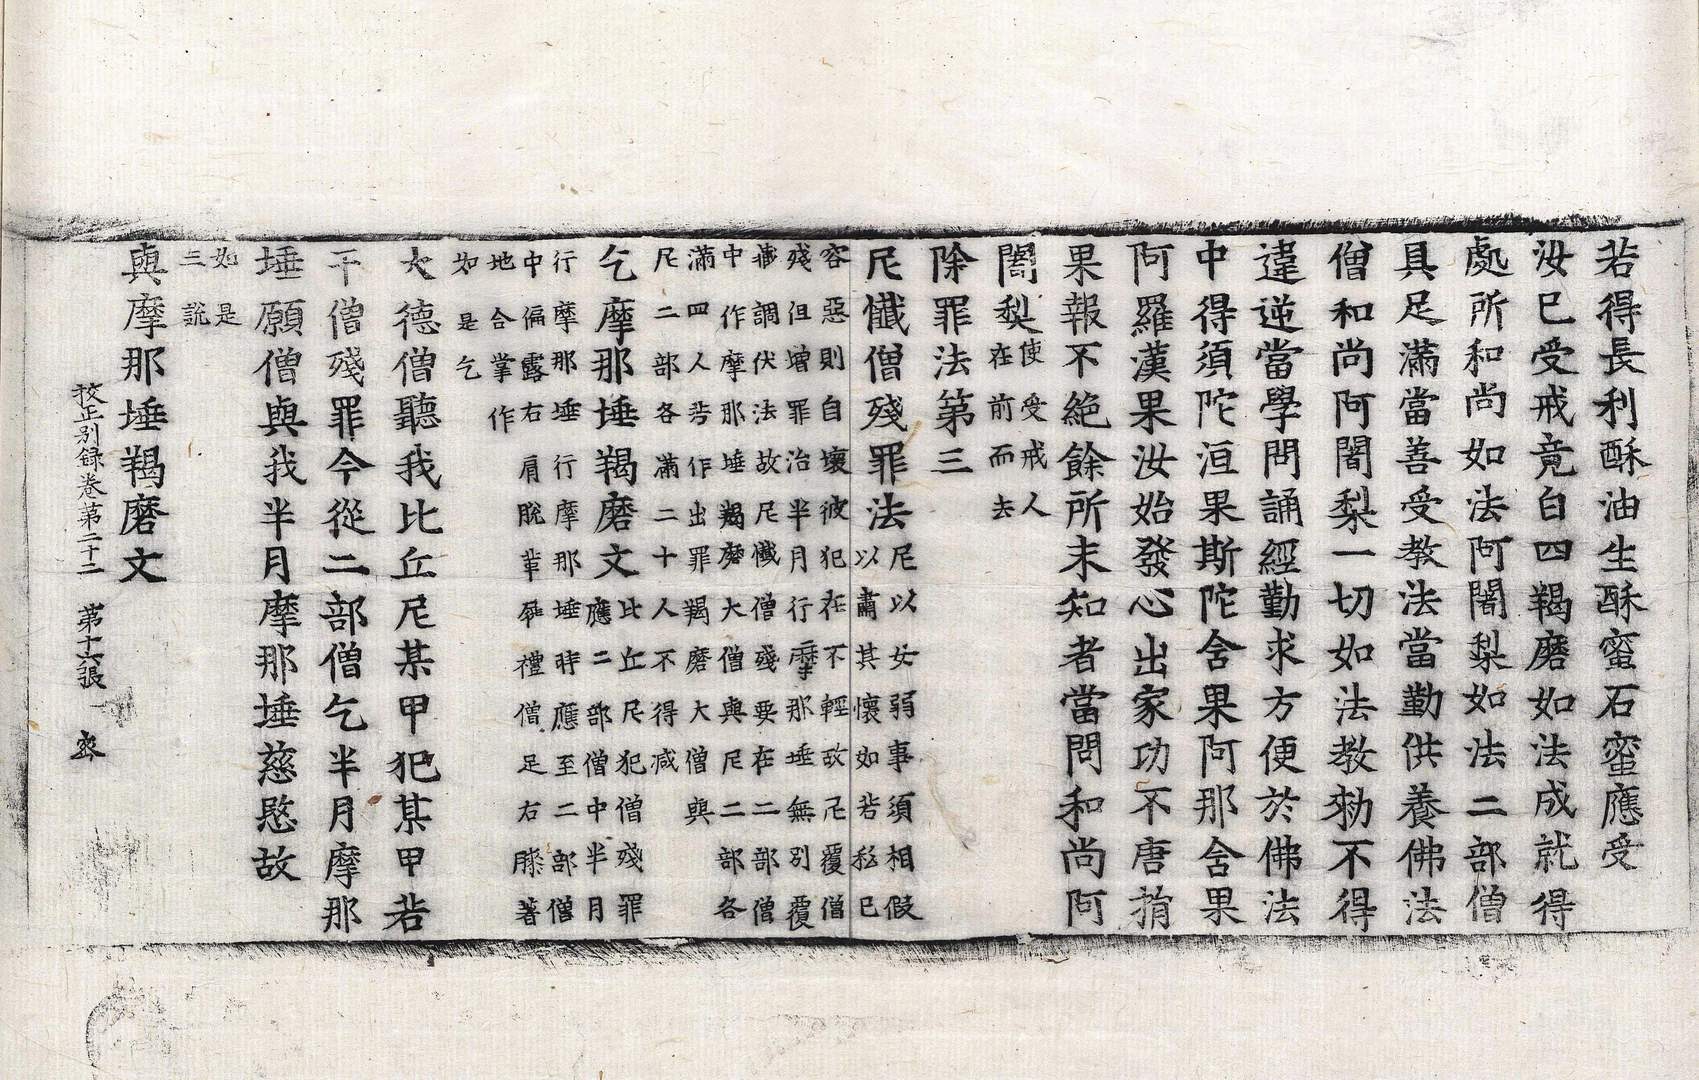 若得長利酥油生酥蜜石蜜應受
汝已受戒竟白四羯磨如法成就得
處所和尚如法阿闍梨如法二部僧
具足滿當善受教法當勤供養佛法
僧和尚阿闍梨一切如法教勑不得
違逆當學問誦經勤求方便於佛法
中得須陀洹果斯陀含果阿那含果
阿羅漢果汝始發心出家功不唐捐
果報不絶餘所未知者當問和尚阿
闍梨使受戒人
在前而去
除罪法第三
尼懺僧殘罪法尼以女弱事須相假
以肅其懷如若私已
容惡則自壞彼犯在不輕故尼覆僧
殘但增罪治半月行摩那埵無別覆
藏調伏法故尼懺僧殘要在二部僧
中作摩那埵羯磨大僧與尼二部各
滿四人若作出罪羯磨大僧與
尼二部各滿二十人不得減
乞摩那埵羯磨文比丘尼犯僧殘罪
應二部僧中半月
行摩那埵行摩那埵時應至二部僧
中偏露右肩脫革屣禮僧足右膝著
地合掌作
如是乞
大德僧聽我比丘尼某甲犯某甲若
干僧殘罪今從二部僧乞半月摩那
埵願僧與我半月摩那埵慈愍故
如是
三說
與摩那埵羯磨文
挍正別録卷第二十二　第十六張　密